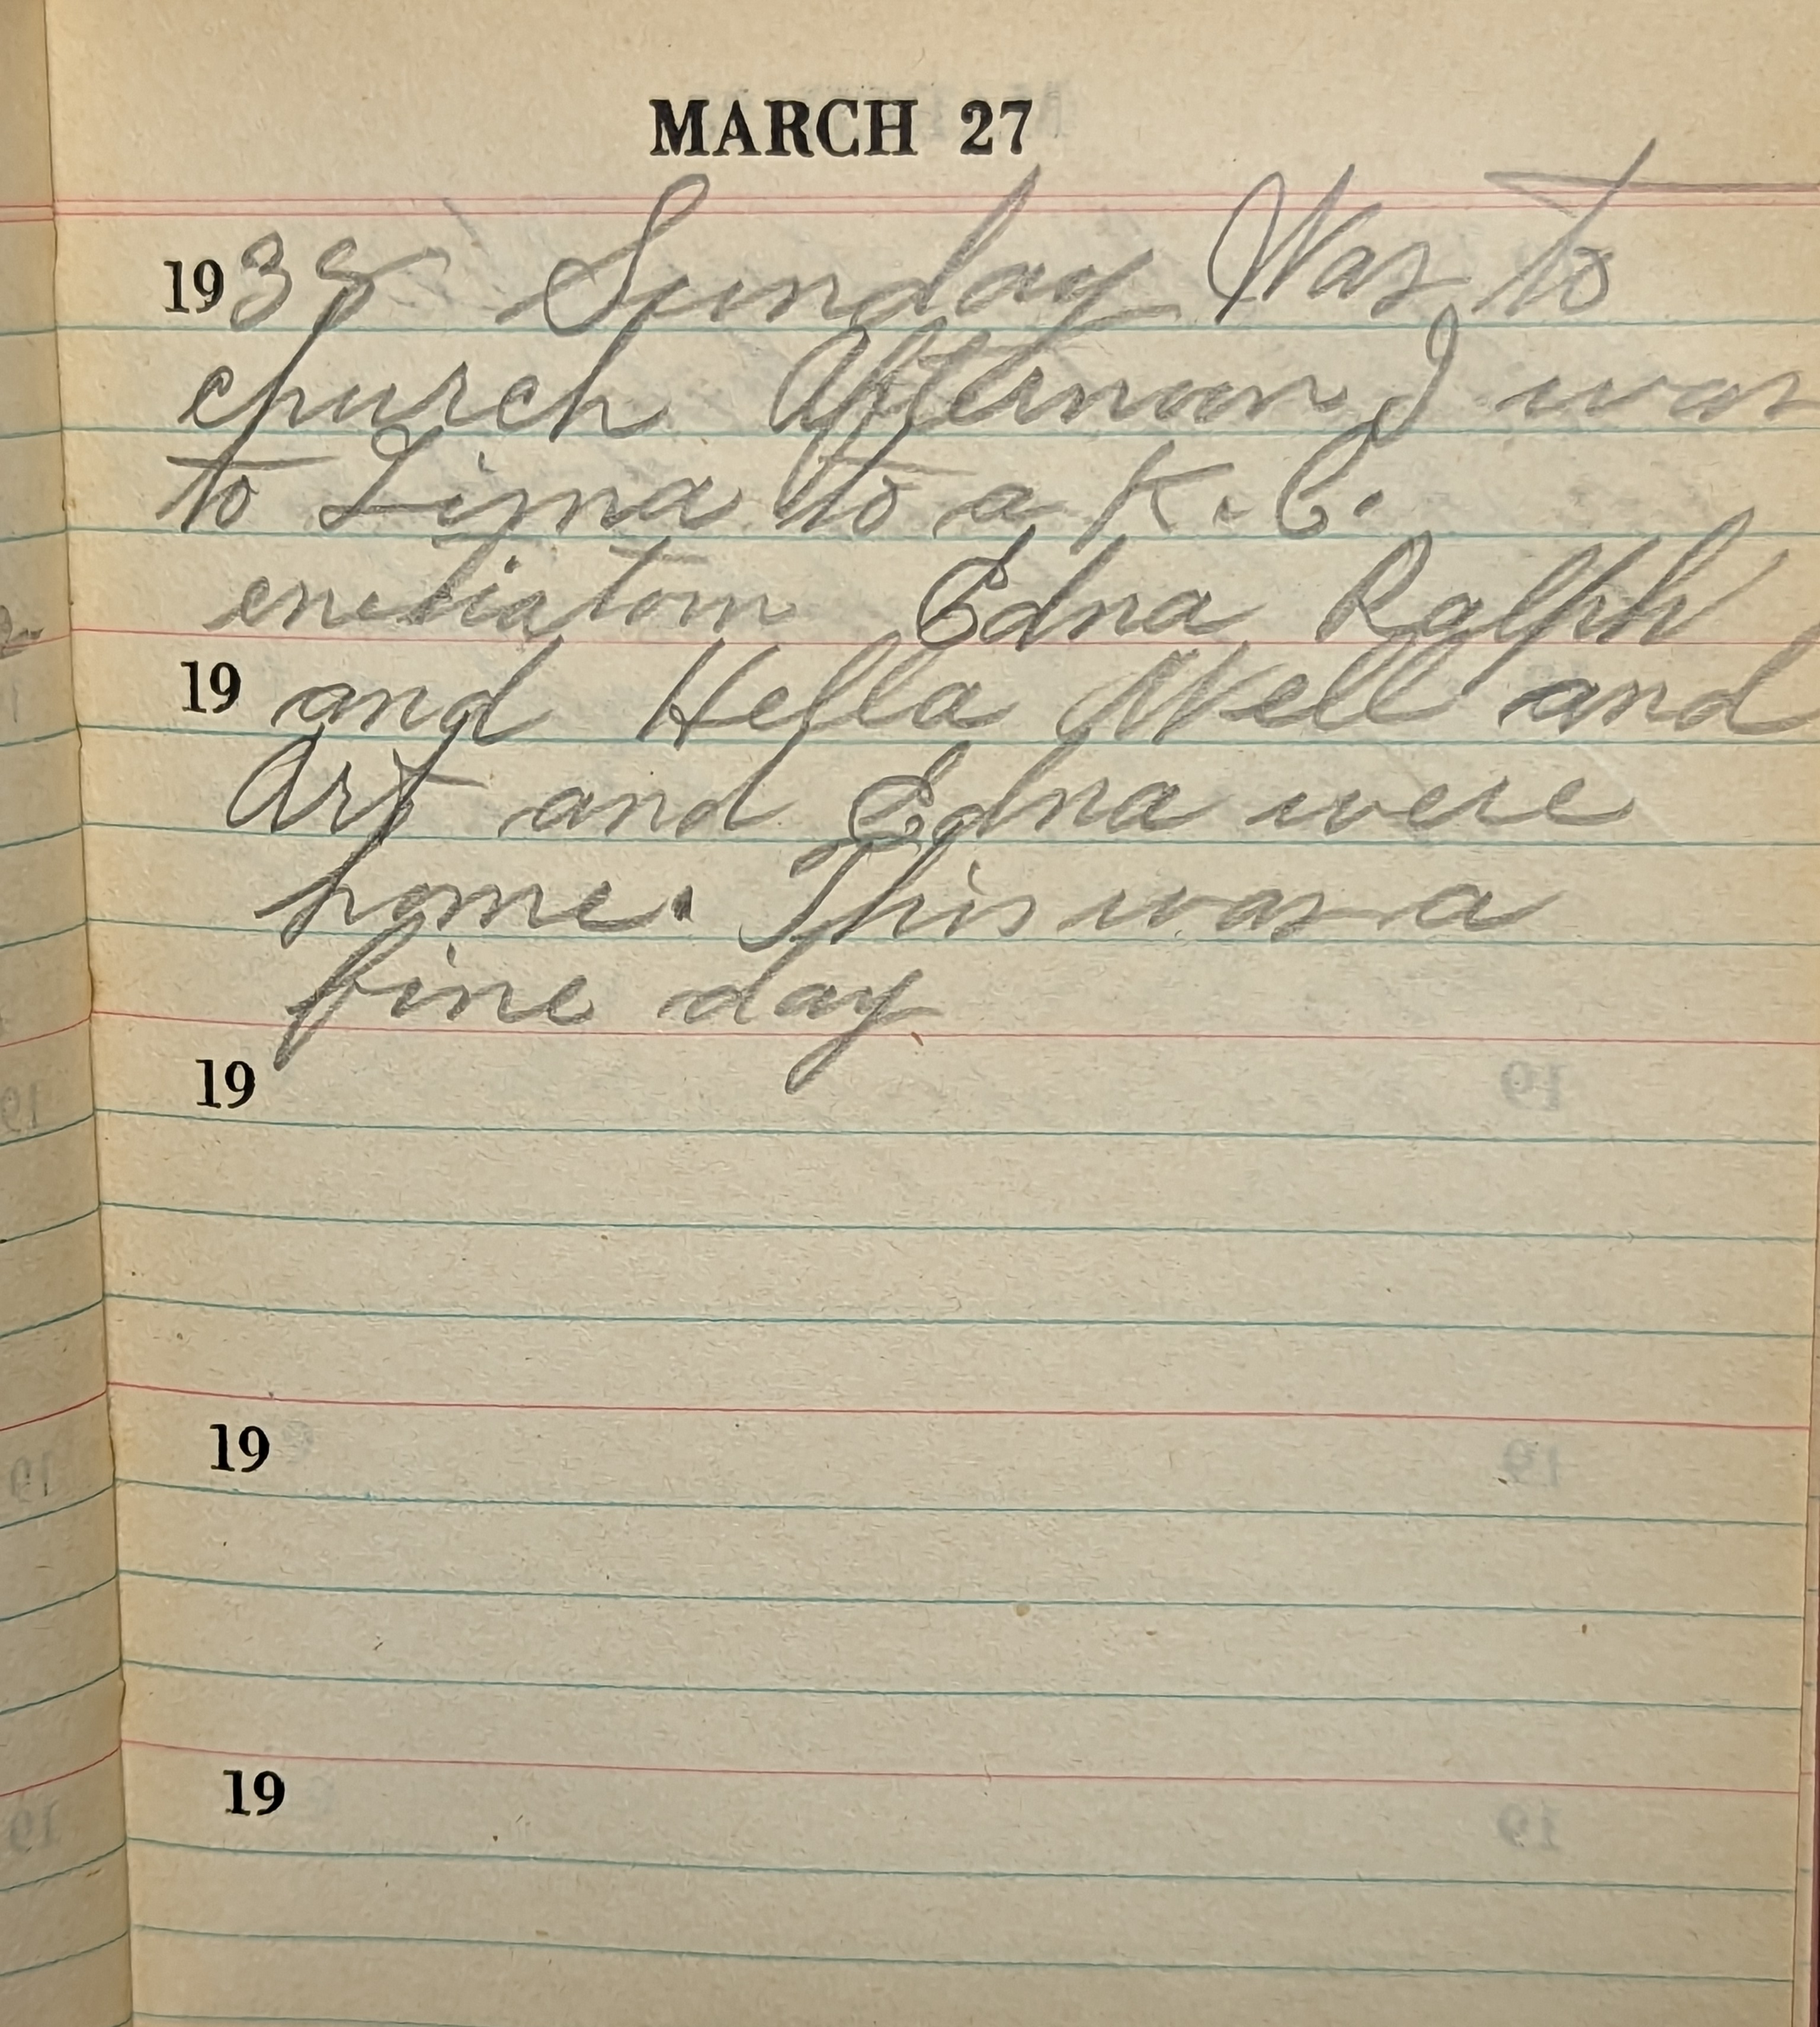 MARCH 27
1938 Sunday Was to
church Afternoon I was
to Lima to a K. C.
enetiatom Edna Ralph
19 and Hella Nell and
Art and Edna were
home. This was a
fine day
19
19
19